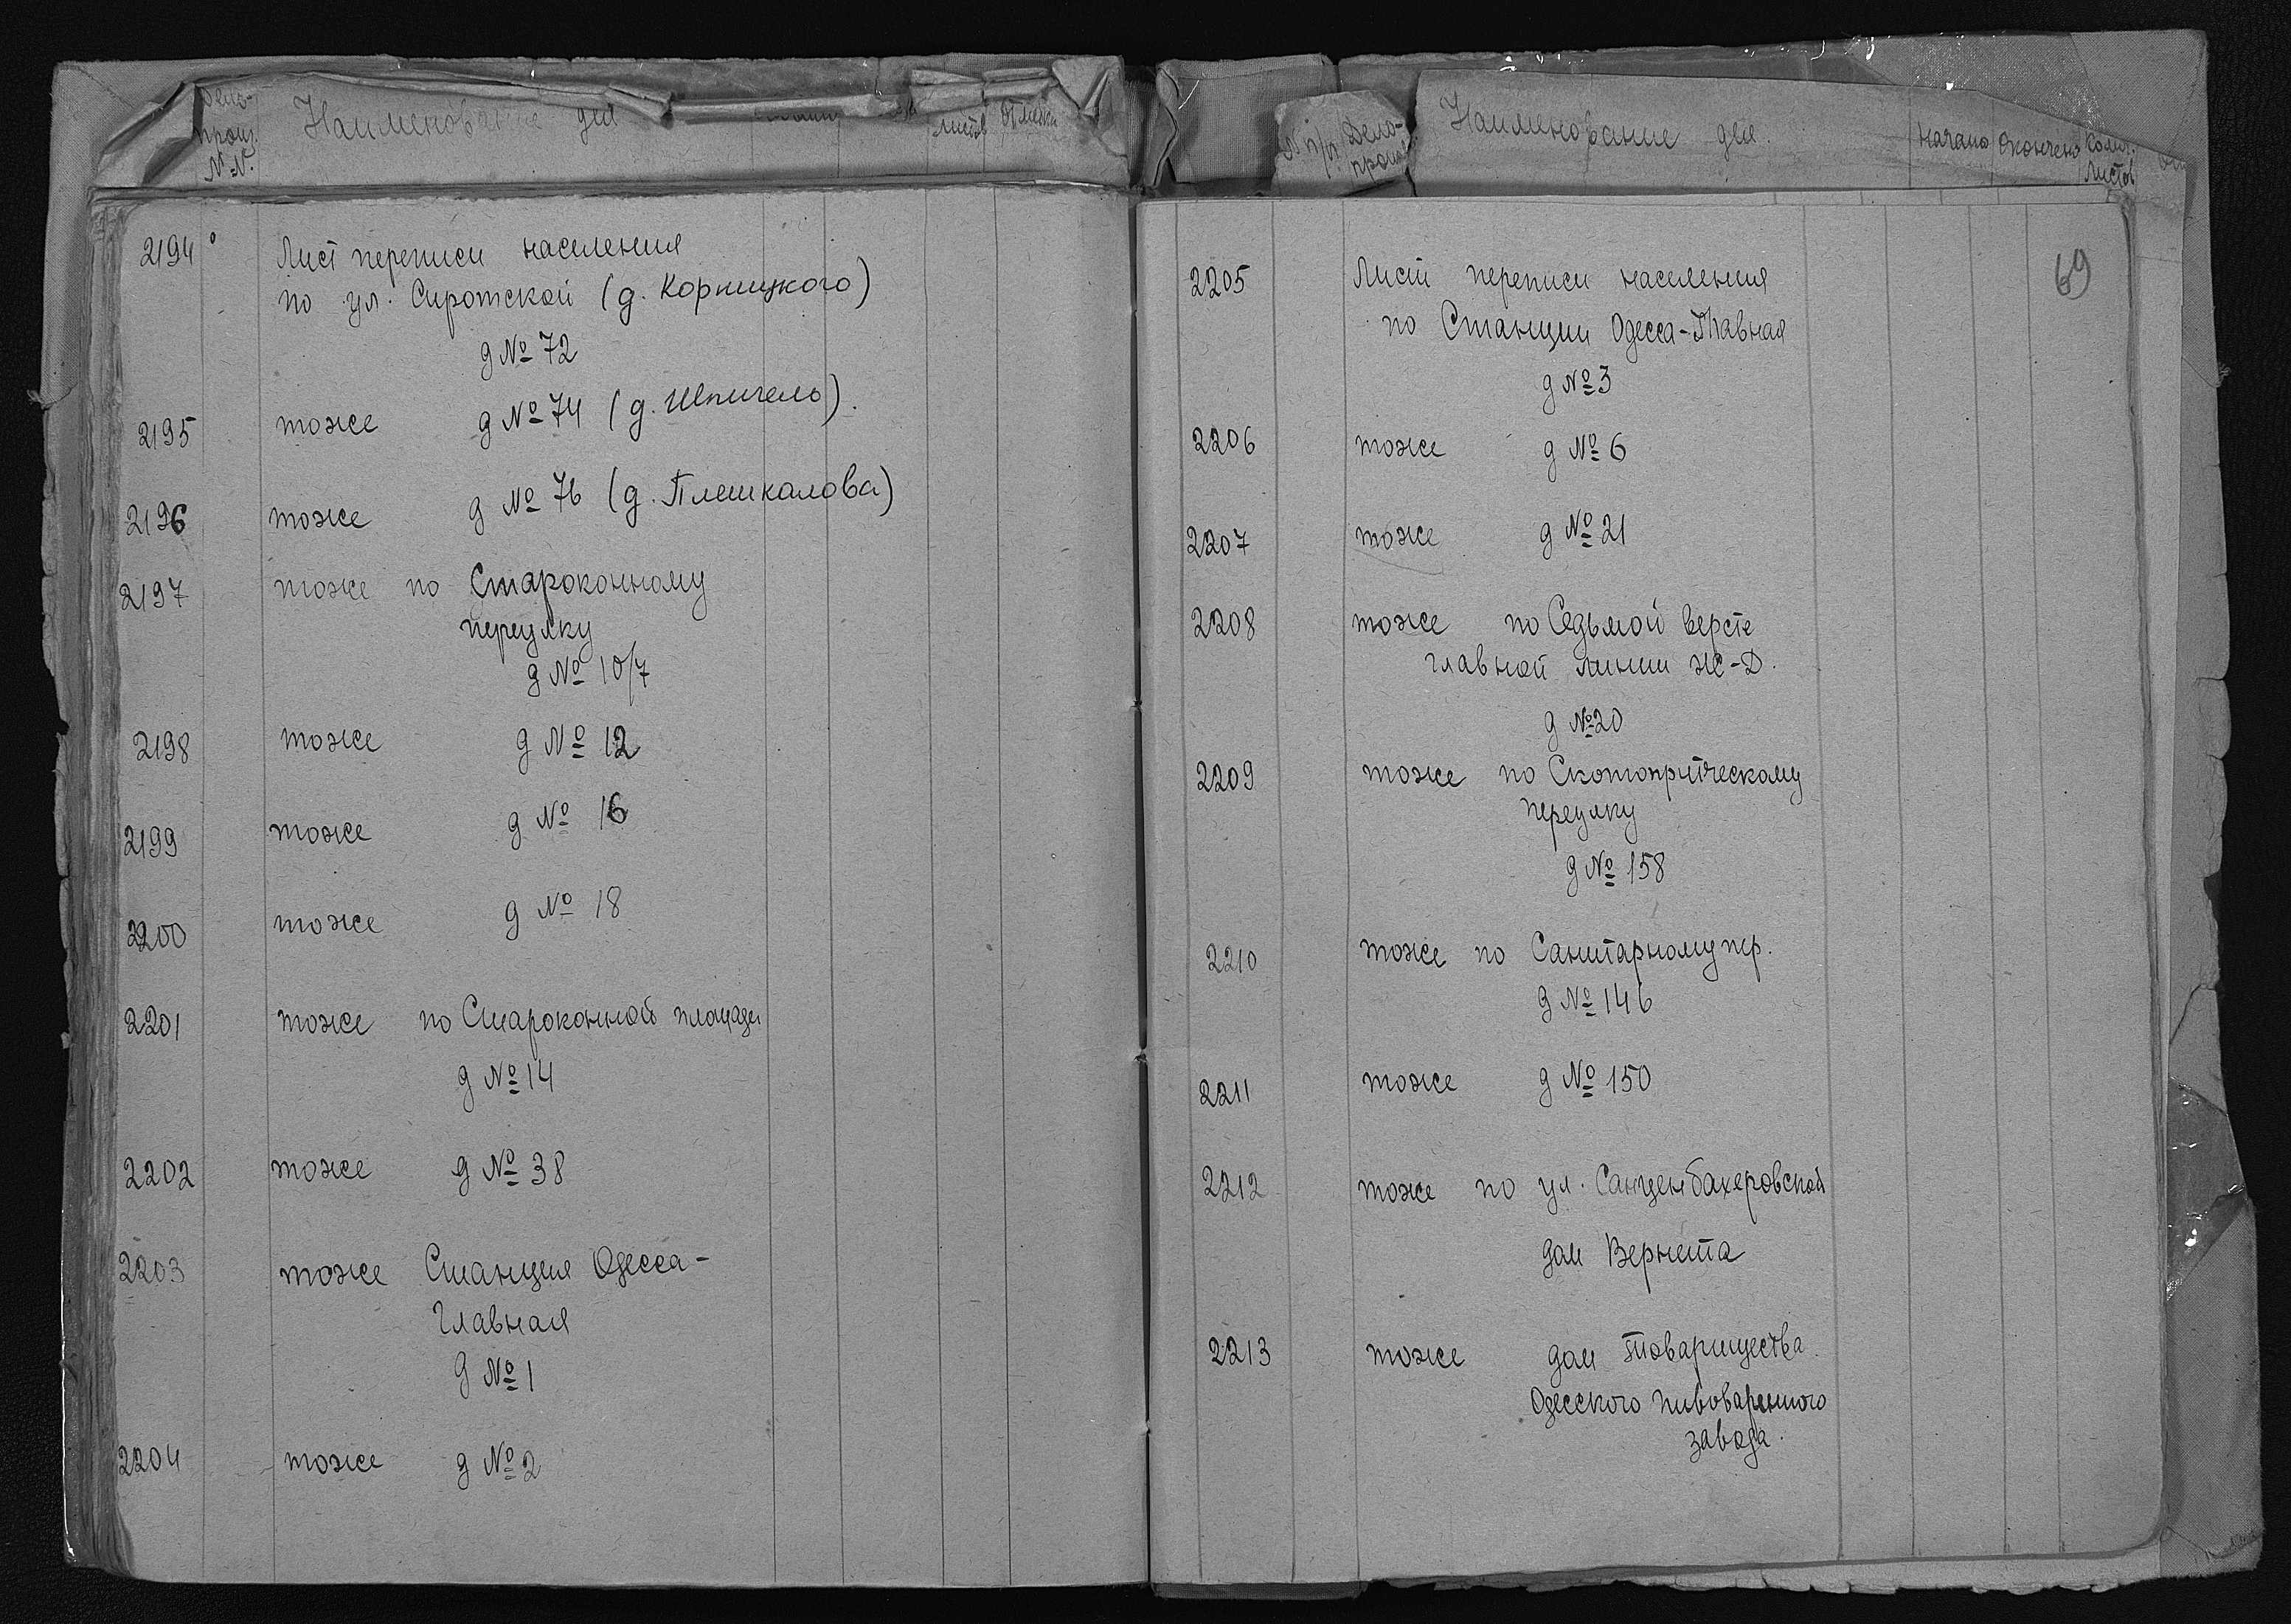 Наименование дел
произ.
N.N.
листов
2194 Лист переписи населения
по ул. Сиротской (д. Корницкого)
д № 72
2195 тоже д № 74 (д. Шпигель).
2196 тоже д № 76 (д. Плешкалова)
2197 тоже по Староконному
переулку
д № 10/7
2198 тоже д № 12
2199 тоже д № 16
2200 тоже д № 18
2201 тоже по Староконной площади
д № 14
2202 тоже д № 38
2203 тоже Станция Одесса-
Главная
д № 1
2204 тоже д № 2
N п/п Дело- Наименование дел. Начало Окончено
листов
69
2205 Лист переписи населения
по Станции Одесса-Главная
д № 3
2206 тоже д № 6
2207 тоже д № 21
2208 тоже по Седьмой версте
главной линии Ж-Д.
д № 20
2209 тоже по
переулку
д № 158
2210 тоже по Санитарному пер.
д № 146
2211 тоже д № 150
2212 тоже по ул. Санценбахеровской
дом Вернета
2213 тоже дом Товарищества
Одесского пивоваренного
завода.